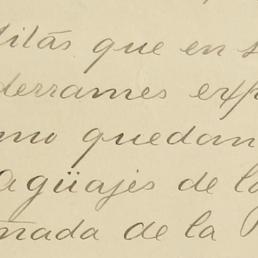 ditás que en s
derrames exp
mo quedan
agüajes de la
nada de la